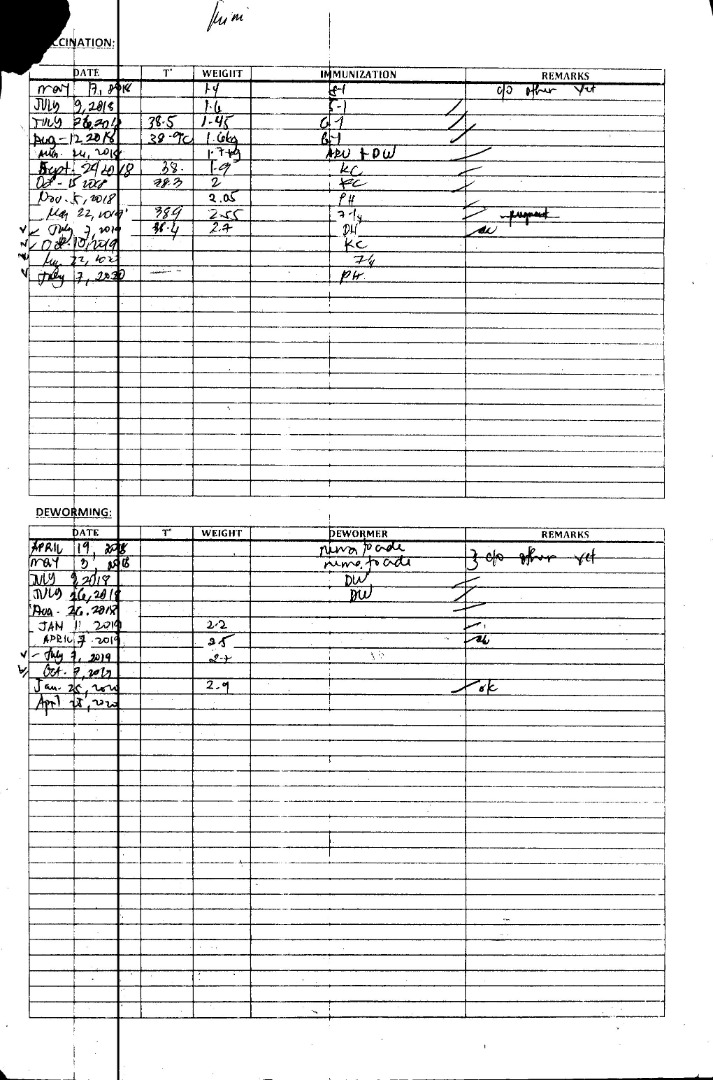 mimi
CCINATION:
DATE T° WEIGHT IMMUNIZATION REMARKS
may 17, 2018 1.4 5-1 c/o other vet
JULY 9, 2018 1.6 5-1
JULY 26, 2018 38.5 1.45 6-1
Aug - 12 2018 38.9c 1.6kg 6-1
Aug. 26, 2018 1.7kg ARV + DW
Sept. 29 2018 38. 1.9 KC
Oct - 15 2018 38.3 2 KC
Nov. 5, 2018 2.05 PH
May 22, 2019 38.9 2.55 7-1y
July 7, 2019 38.4 2.7 PH
Oct 10, 2019 KC
22, 2020 7-1y
July 7, 2020 PH.
DEWORMING:
DATE T° WEIGHT DEWORMER REMARKS
APRIL 19, 2018 nematocide
may 3, 2018 nematocide } c/o other vet
JULY 9, 2018 DW
JULY 26, 2018 DW
Aug. 26. 2018
JAN 11 2019 2.2
APRIL 7 2019 2.5
July 7, 2019 2.7
Oct. 7, 2019
Jan. 25, 2020 2.9 ok
April 25, 2020